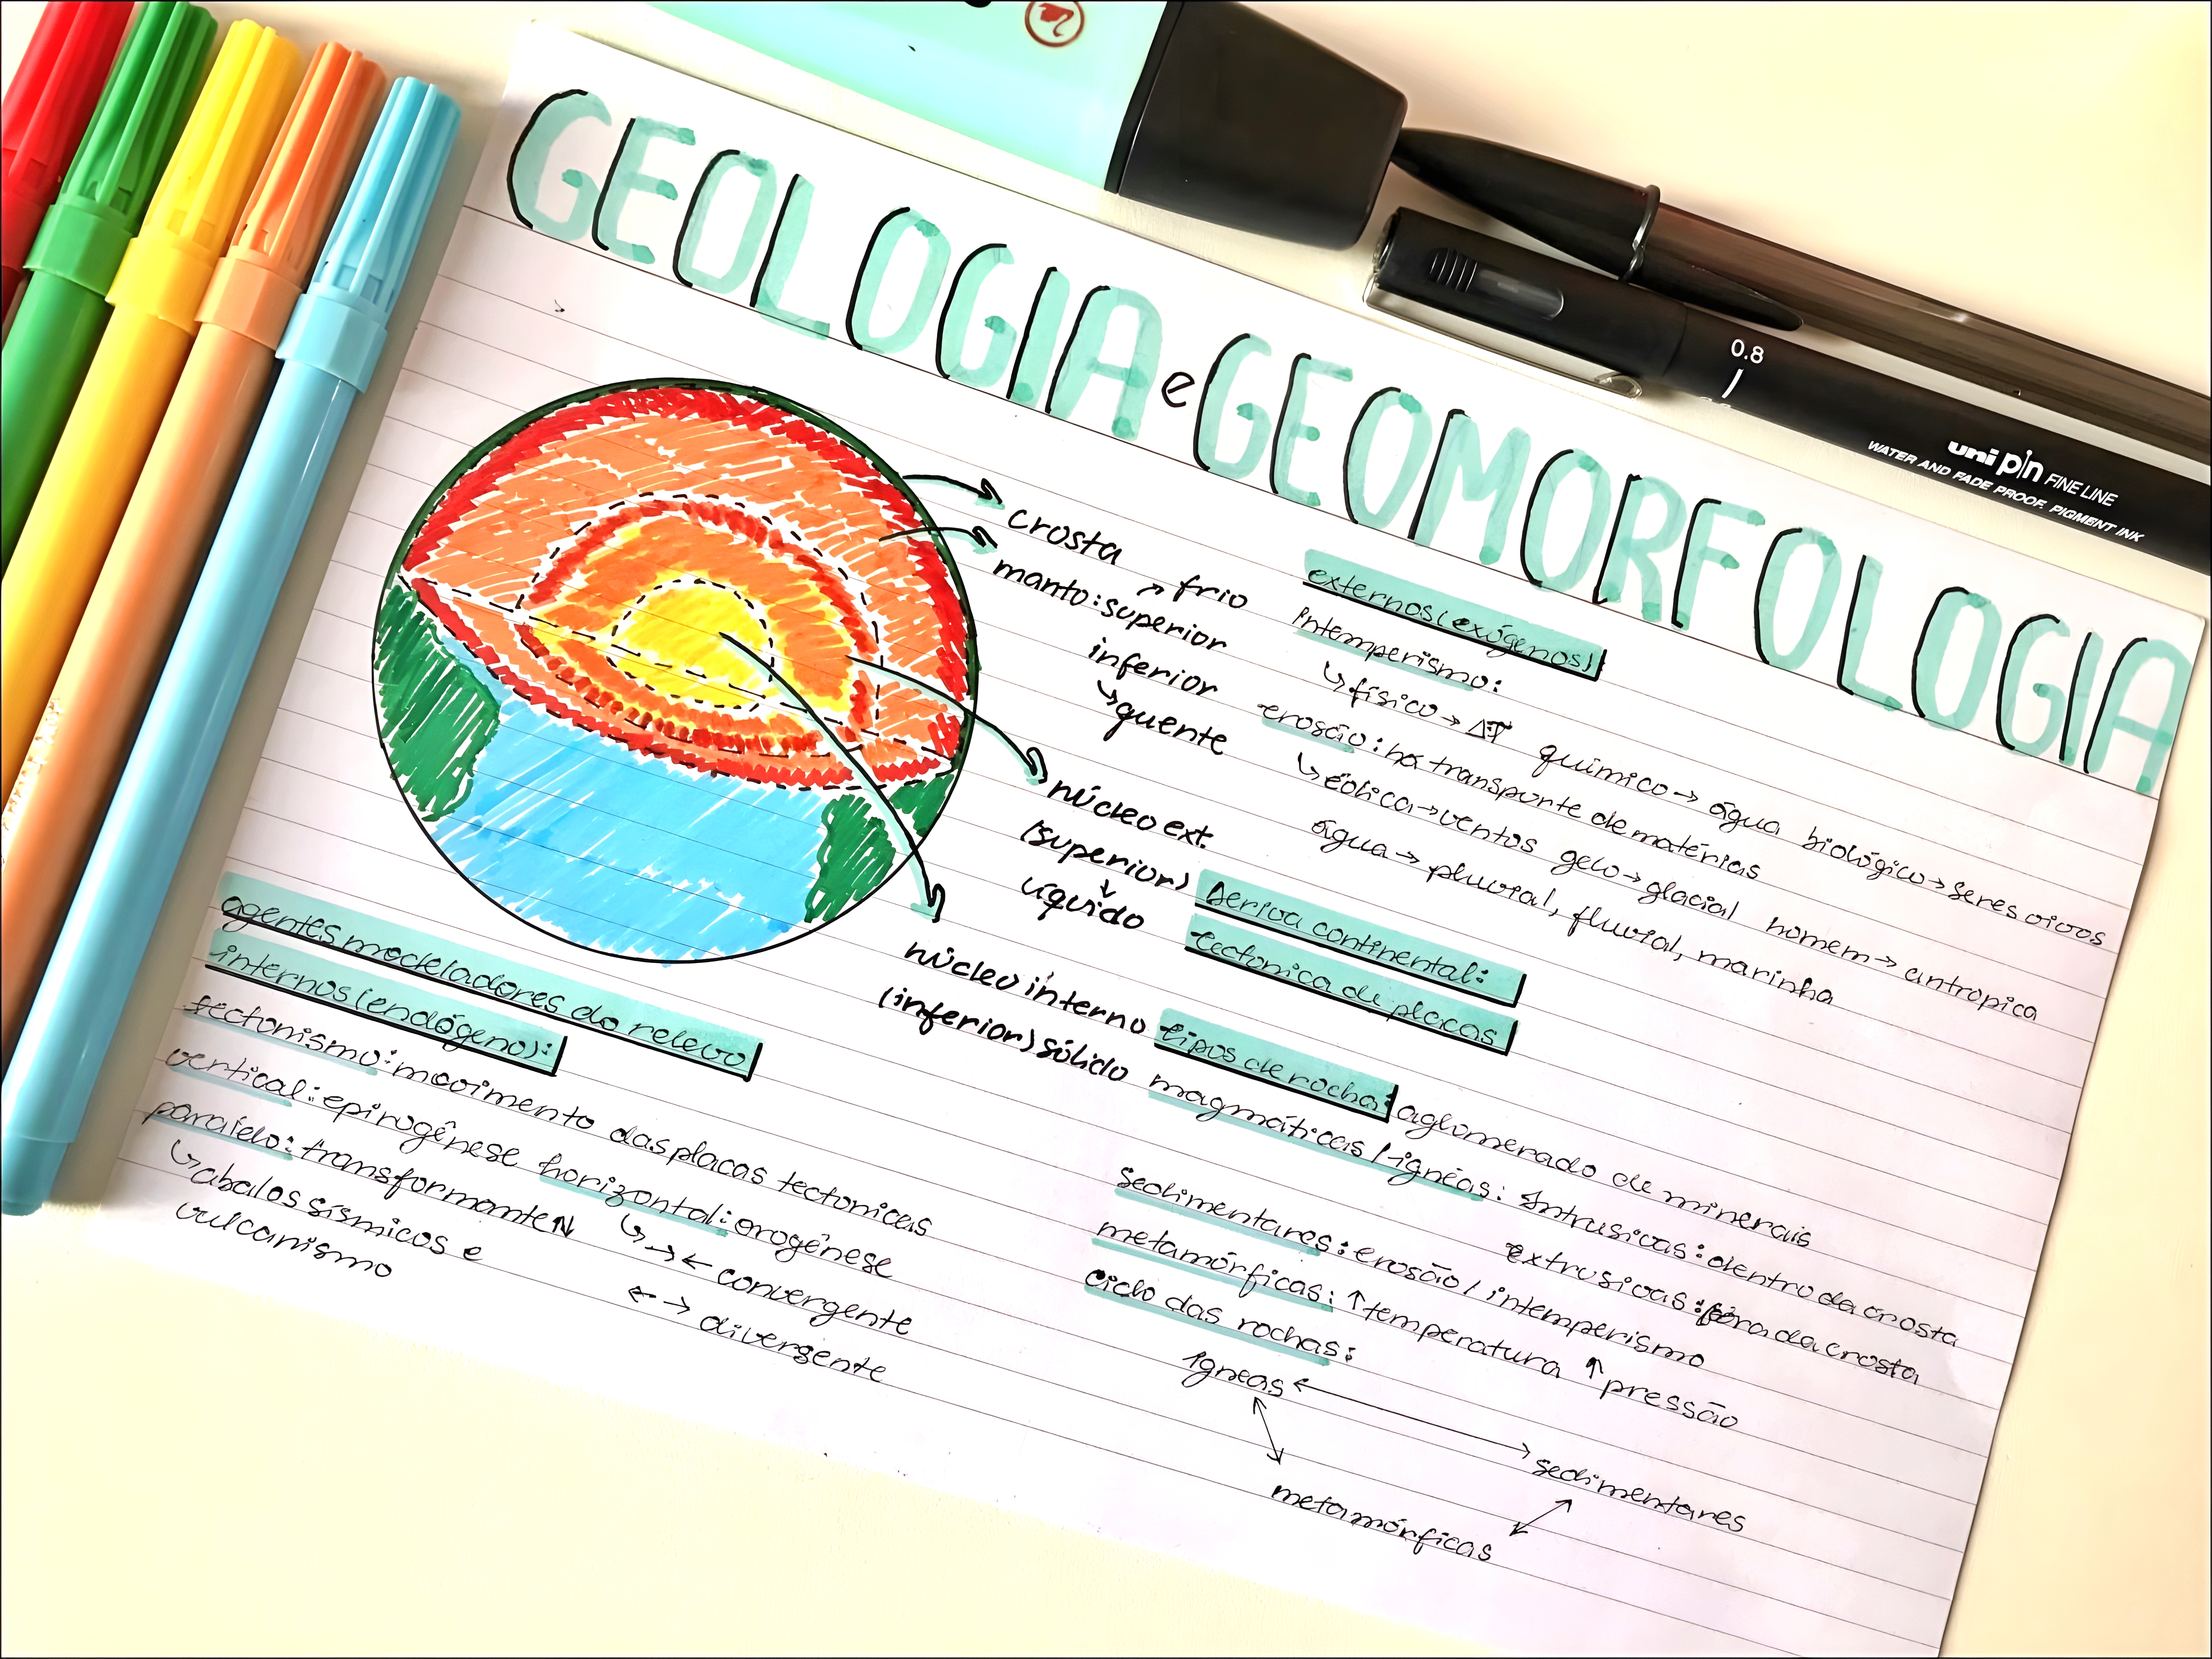 GEOLOGIA e GEOMORFOLOGIA
0.8
uni pin FINE LINE
WATER AND FADE PROOF, PIGMENT INK
crosta
manto: superior
↗ frio
inferior
↳ quente
núcleo ext.
(superior)
↓
líquido
núcleo interno
(inferior) sólido
agentes modeladores do relevo
internos (endógeno):
tectonismo: movimento das placas tectonicas
vertical: epirogênese horizontal: orogênese
↳ →← convergente
←→ divergente
paralelo: transformante ↑↓
↳ abalos sísmicos e
vulcanismo
externos (exógenos):
intemperismo:
↳ físico → ΔT químico → água biológico → seres vivos
erosão: há transporte de matérias
↳ eólica → ventos gelo → glacial homem → antropica
água → pluvial, fluvial, marinha
Deriva continental:
tectonica de placas
tipos de rocha: aglomerado de minerais
magmáticas / ígneas: Intrusivas: dentro da crosta
extrusivas: fora da crosta
Sedimentares: erosão / intemperismo
metamórficas: ↑ temperatura ↑ pressão
Ciclo das rochas:
Igneas ↔ sedimentares
metamórficas